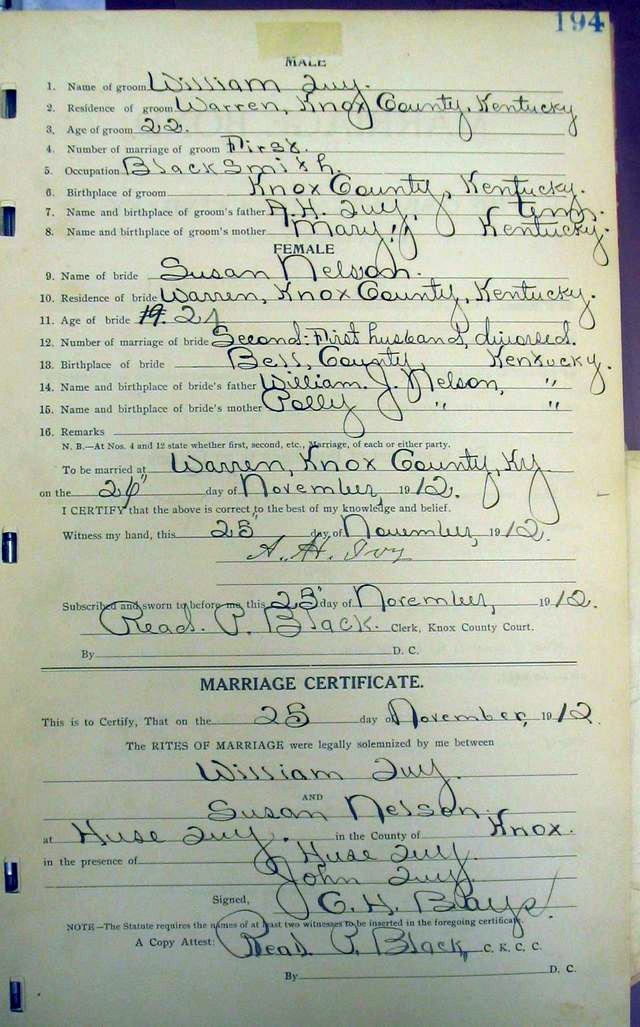 194
MALE
1. Name of groom William Ivy.
2. Residence of groom Warren, Knox County, Kentucky
3. Age of groom 22.
4. Number of marriage of groom First.
5. Occupation Blacksmith.
6. Birthplace of groom Knox County, Kentucky.
7. Name and birthplace of groom's father A.H. Ivy, Tenn.
8. Name and birthplace of groom's mother Mary, " Kentucky.
FEMALE
9. Name of bride Susan Nelson.
10. Residence of bride Warren, Knox County, Kentucky.
11. Age of bride 19. 21
12. Number of marriage of bride Second: First husband, divorsed.
13. Birthplace of bride Bell, County, Kentucky.
14. Name and birthplace of bride's father William. J. Nelson, "
15. Name and birthplace of bride's mother Polly " "
16. Remarks
N. B.—At Nos. 4 and 12 state whether first, second, etc., Marriage, of each or either party.
To be married at Warren, Knox County, Ky.
on the day of November, 1912.
I CERTIFY that the above is correct to the best of my knowledge and belief.
Witness my hand, this 25" day of November, 1912.
A. H. Ivy
Subscribed and sworn to before me, this 25" day of November, 1912.
Read. P. Black. Clerk, Knox County Court.
By D. C.
MARRIAGE CERTIFICATE.
This is to Certify, That on the 25 day of November, 1912.
The RITES OF MARRIAGE were legally solemnized by me between
William Ivy.
AND
Susan Nelson.
at Huse Ivy. in the County of Knox.
in the presence of Huse Ivy.
John Ivy.
Signed, G. H. Bays.
NOTE—The Statute requires the names of at least two witnesses to be inserted in the foregoing certificate.
A Copy Attest: Read P. Black, C. K. C. C.
By D. C.